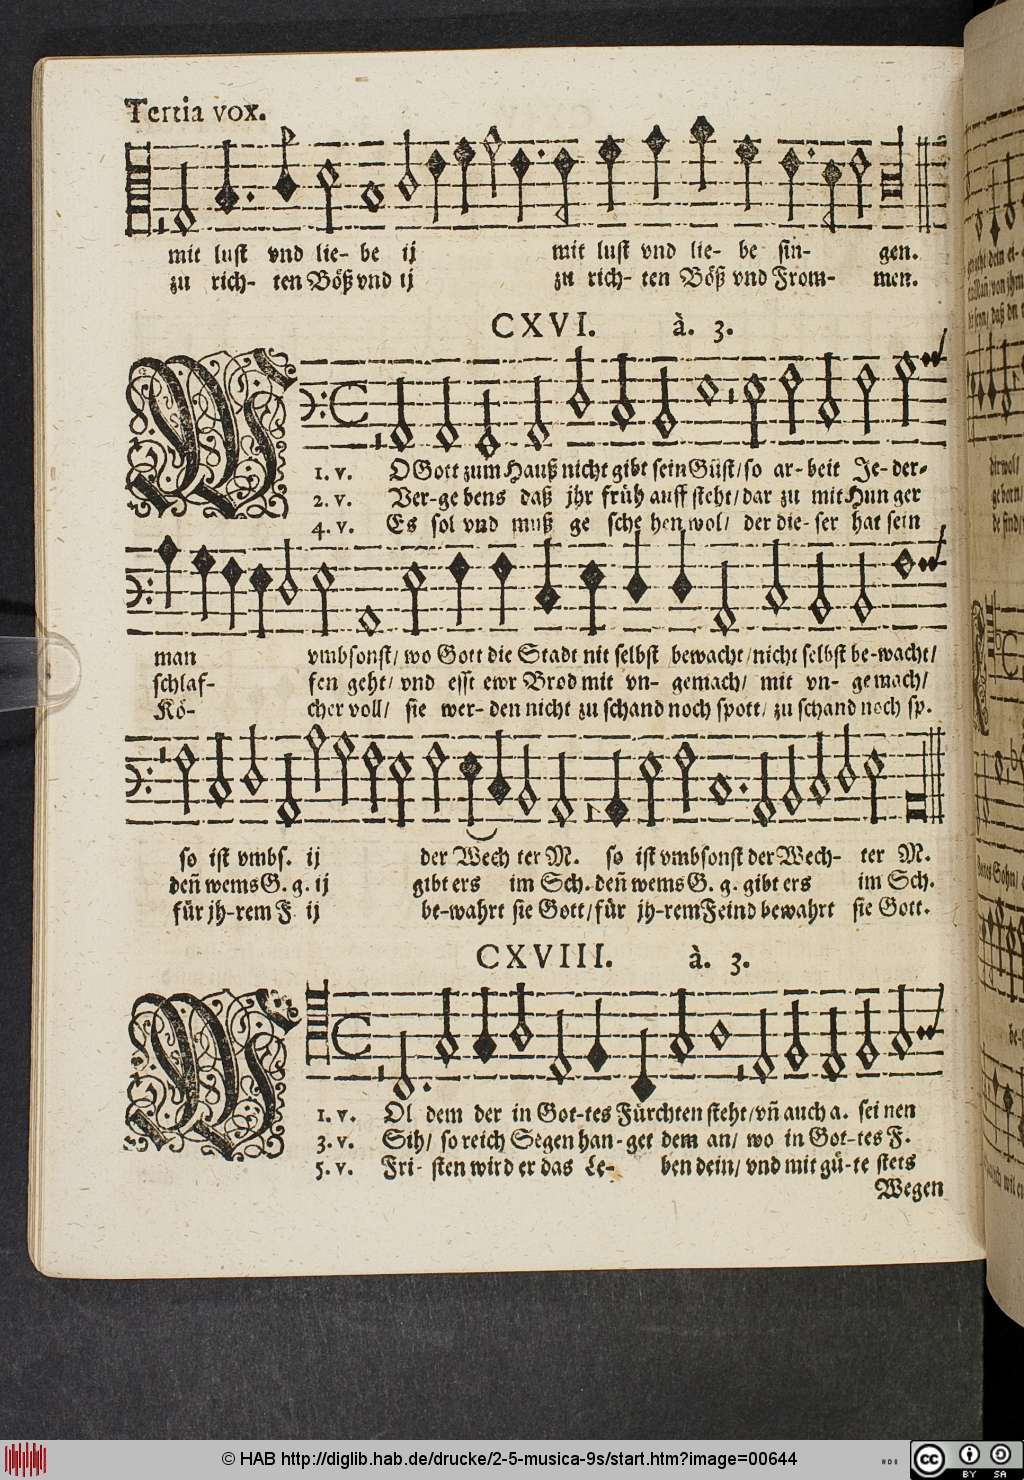 Tertia vox.
mit lust vnd lie- be ij mit lust vnd lie- be sin- gen.
zu rich- ten Böß vnd ij zu rich- ten Böß vnd From- men.
CXVI. à. 3.
W
1. v. O Gott zum Hauß nicht gibt sein Güst/ so ar- beit Je- der-
2. v. Ver-ge bens daß jhr früh auff steht/ dar zu mit Hun ger
4. v. Es sol vnd muß ge sche hen wol/ der die- ser hat sein
man vmbsonst/ wo Gott die Stadt nit selbst bewacht/ nicht selbst be-wacht/
schlaf- fen geht/ vnd esst ewr Brod mit vn- gemach/ mit vn- ge mach/
Kö- cher voll/ sie wer- den nicht zu schand noch spott/ zu schand noch sp.
so ist vmbs. ij der Wech ter M. so ist vmbsonst der Wech- ter M.
deñ wems G. g. ij gibt ers im Sch. deñ wems G. g. gibt ers im Sch.
für jh-rem F. ij be-wahrt sie Gott/ für jh-rem Feind bewahrt sie Gott.
CXVIII. à. 3.
W
1. v. Ol dem der in Got-tes Fürchten steht/ vñ auch a. sei nen
3. v. Sih/ so reich Segen han-get dem an/ wo in Got-tes F.
5. v. Fri- sten wird er das Le- ben dein/ vnd mit gü-te stets
Wegen
© HAB http://diglib.hab.de/drucke/2-5-musica-9s/start.htm?image=00644
cc BY SA